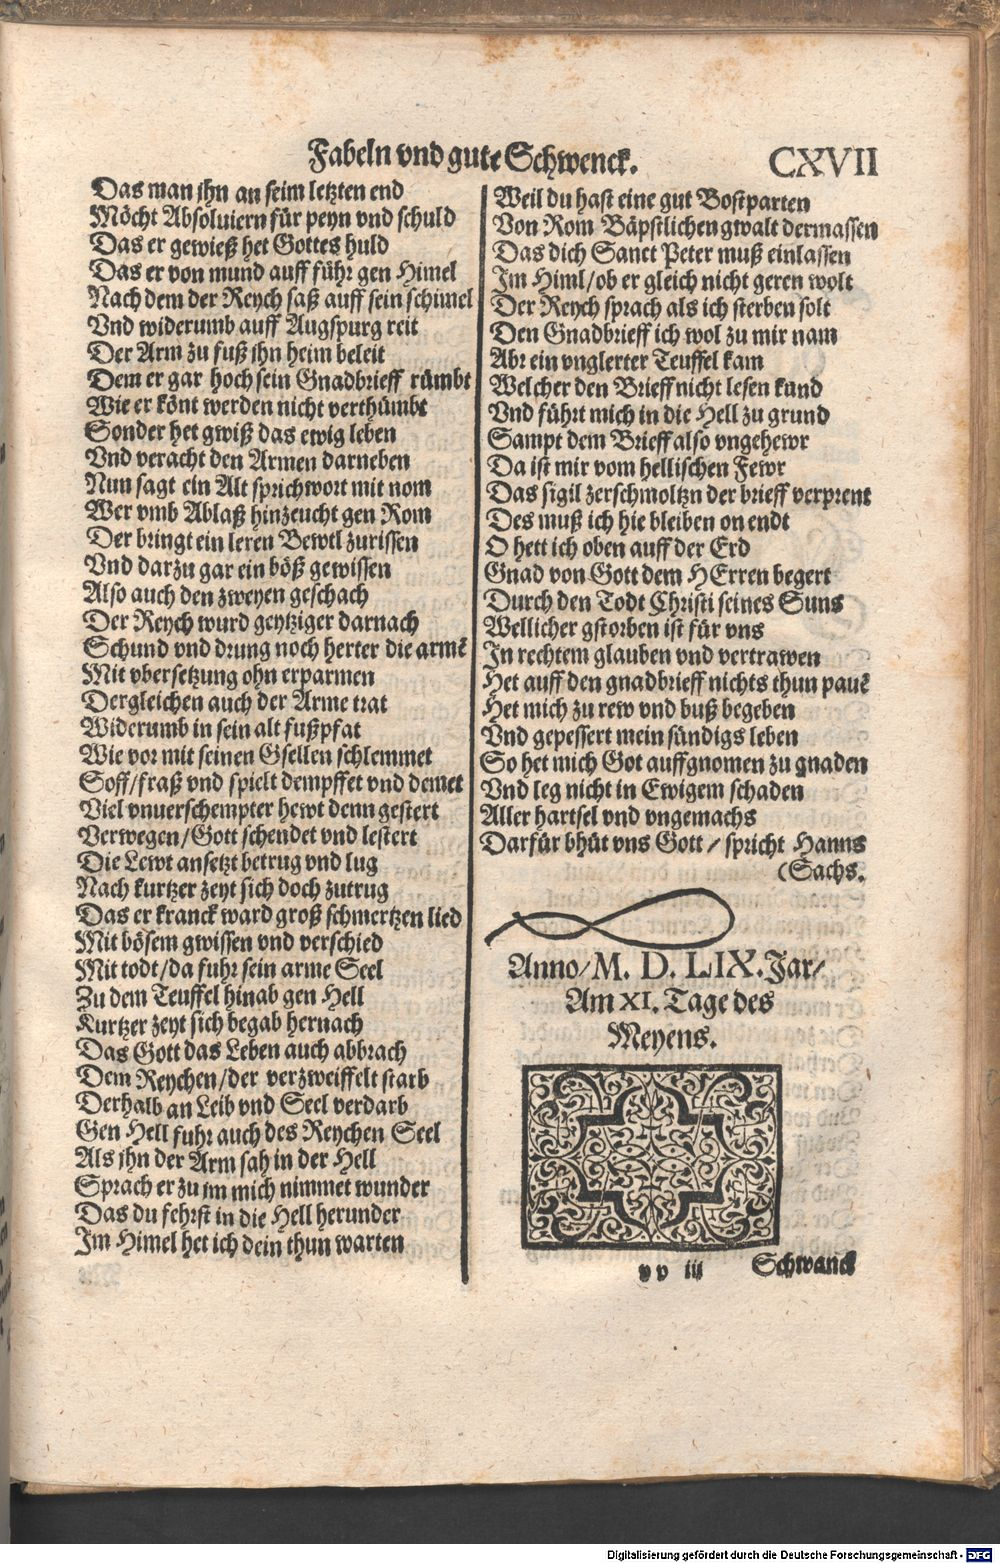 Fabeln vnd gute Schwenck. CXVII
Das man jhn an seim letzten end
Möcht Absoluiern für peyn vnd schuld
Das er gewieß het Gottes huld
Das er von mund auff führ gen Himel
Nach dem der Reych saß auff sein schimel
Vnd widerumb auff Augspurg reit
Der Arm zu fuß jhn heim beleit
Dem er gar hoch sein Gnadbrieff rümbt
Wie er könt werden nicht verthümbt
Sonder het gwiß das ewig leben
Vnd veracht den Armen darneben
Nun sagt ein Alt sprichwort mit nom
Wer vmb Ablaß hinzeucht gen Rom
Der bringt ein leren Bewtl zurissen
Vnd darzu gar ein böß gewissen
Also auch den zweyen geschach
Der Reych wurd geytziger darnach
Schund vnd drung noch herter die armē
Mit vbersetzung ohn erparmen
Dergleichen auch der Arme trat
Widerumb in sein alt fußpfat
Wie vor mit seinen Gsellen schlemmet
Soff/fraß vnd spielt dempffet vnd demet
Viel vnuerschempter hewt denn gestert
Verwegen/Gott schendet vnd lestert
Die Lewt ansetzt betrug vnd lug
Nach kurtzer zeyt sich doch zutrug
Das er kranck ward groß schmertzen lied
Mit bösem gwissen vnd verschied
Mit todt/da fuhr sein arme Seel
Zu dem Teuffel hinab gen Hell
Kurtzer zeyt sich begab hernach
Das Gott das Leben auch abbrach
Dem Reychen/der verzweiffelt starb
Derhalb an Leib vnd Seel verdarb
Gen Hell fuhr auch des Reychen Seel
Als jhn der Arm sah in der Hell
Sprach er zu jm mich nimmet wunder
Das du fehrst in die Hell herunder
Im Himel het ich dein thun warten
Weil du hast eine gut Bostparten
Von Rom Bäpstlichen gwalt dermassen
Das dich Sanct Peter muß einlassen
Im Himl/ob er gleich nicht geren wolt
Der Reych sprach als ich sterben solt
Den Gnadbrieff ich wol zu mir nam
Abr ein vnglerter Teuffel kam
Welcher den Brieff nicht lesen kund
Vnd führt mich in die Hell zu grund
Sampt dem Brieff also vngehewr
Da ist mir vom hellischen Fewr
Das sigil zerschmoltzn der brieff verprent
Des muß ich hie bleiben on endt
O hett ich oben auff der Erd
Gnad von Gott dem HErren begert
Durch den Todt Christi seines Suns
Wellicher gstorben ist für vns
In rechtem glauben vnd vertrawen
Het auff den gnadbrieff nichts thun pauē
Het mich zu rew vnd buß begeben
Vnd gepessert mein sündigs leben
So het mich Got auffgnomen zu gnaden
Vnd leg nicht in Ewigem schaden
Aller hartsel vnd vngemachs
Darfür bhüt vns Gott / spricht Hanns
(Sachs.
Anno/M. D. LIX. Jar/
Am XI. Tage des
Meyens.
vv iii Schwanck
Digitalisierung gefördert durch die Deutsche Forschungsgemeinschaft - DFG